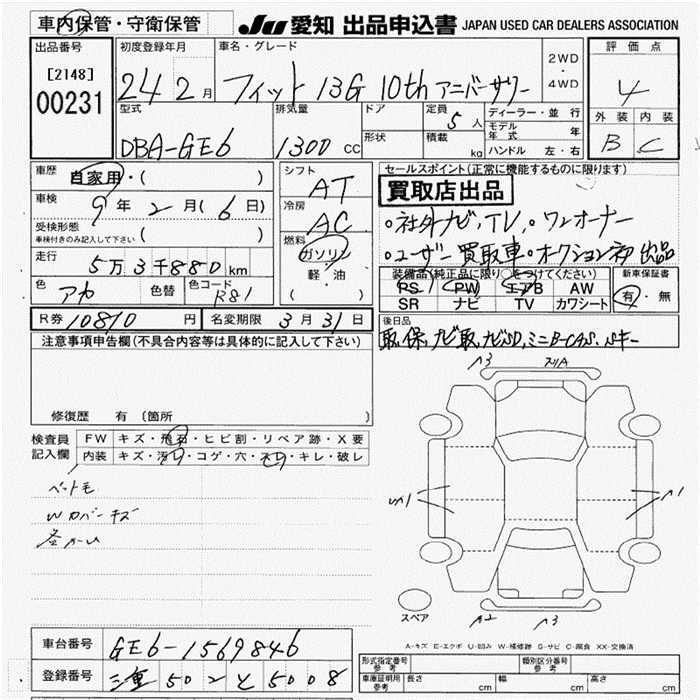 車内保管・守衛保管
JU 愛知 出品申込書 JAPAN USED CAR DEALERS ASSOCIATION
出品番号
[2148]
00231
初度登録年月
24 2月
車名・グレード
フィット 13G 10th アニバーサリー
2WD
・
4WD
評価点
4
外装 内装
B C
型式
DBA-GE6
排気量
1300 CC
ドア
形状
定員 5人
積載 kg
ディーラー・並行
モデル年式 年
ハンドル 左・右
車歴
自家用・( )
車検 9年 2月(6日)
受検形態
車検付きのみ記入して下さい
走行 5万3千880km
色 アカ 色替 色コード R81
シフト AT
冷房 AC
燃料
ガソリン
軽・油
( )
セールスポイント(正常に機能するものに限ります)
買取店出品
○社外ナビ,TV,○ワンオーナー
○ユーザー買取車○オークション初出品
装備品(純正品に限り○をつけてください)
PS PW エアB AW
SR ナビ TV カワシート
新車保証書
有・無
R券 10810円 名変期限 3月31日
後日品
取,保,ナビ取,ナビSD,ミニB-CAS,Sキー
注意事項申告欄(不具合内容等は具体的に記入して下さい)
修復歴 有(箇所 )
検査員
記入欄
FW キズ・飛石・ヒビ割・リペア跡・X要
内装 キズ・汚レ・コゲ・穴・スレ・キレ・破レ
ペット毛
Wカバーキズ
A3
A1
A2 A3
スペア
A-キズ E-エクボ U-凹み W-補修跡 S-サビ C-腐食 XX-交換済
車台番号 GE6-1569846
登録番号 三重 502 と 5008
形式指定番号
参考
類別区分番号
参考
車庫証明用
参考
長さ cm 幅 cm 高さ cm